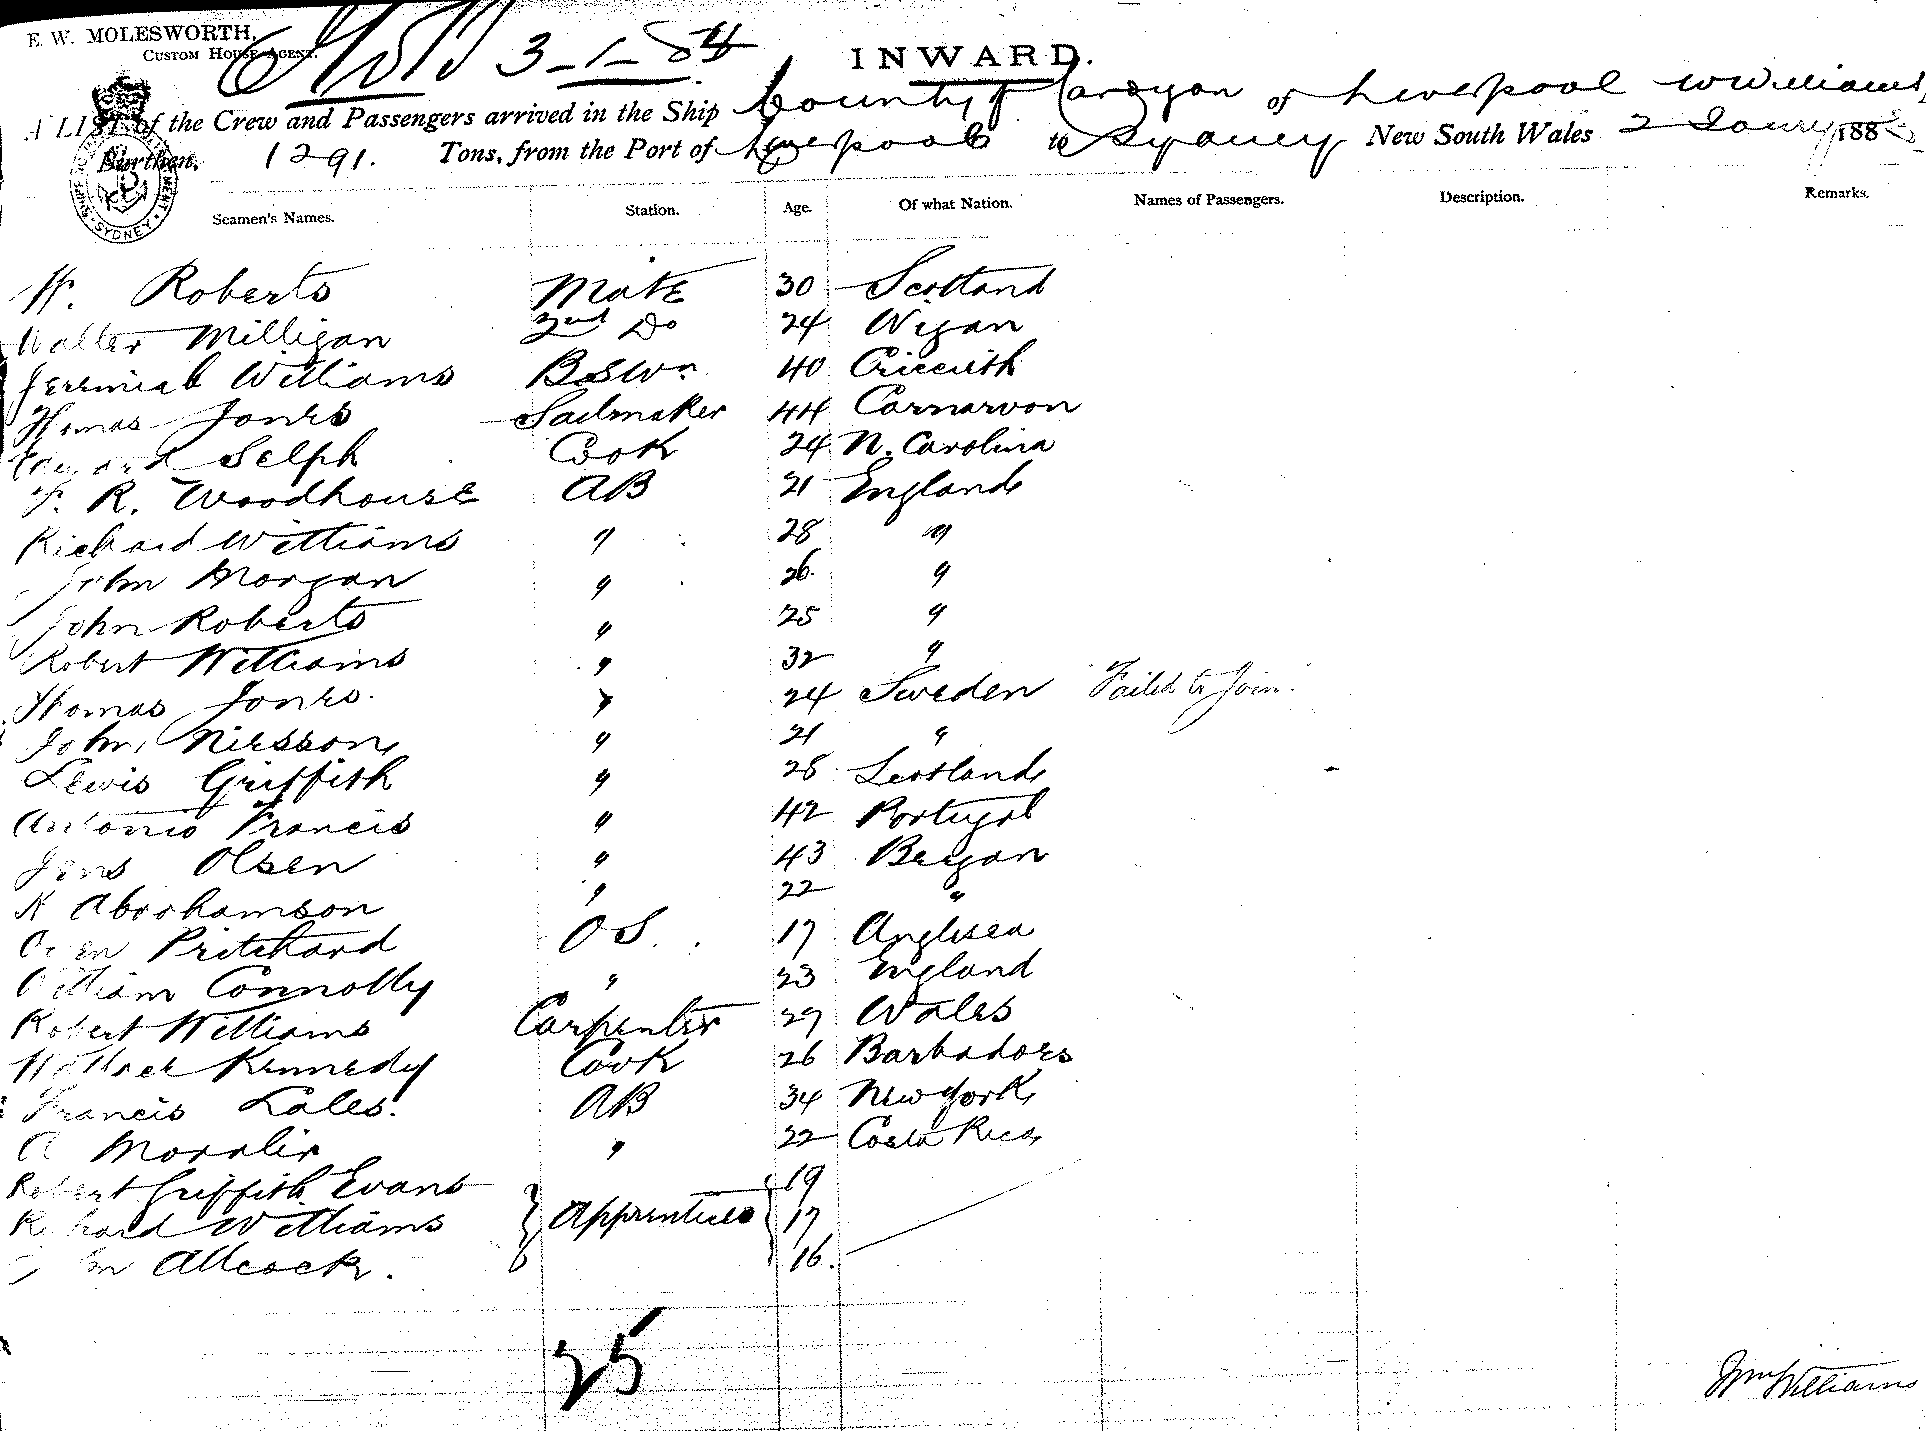 E. W. MOLESWORTH,
CUSTOM HOUSE AGENT.
3-1-84
INWARD.
A LIST of the Crew and Passengers arrived in the Ship County of Cardigan of Liverpool W Williams,
Burthen, 1291. Tons, from the Port of Liverpool to Sydney New South Wales 2 188
Seamen's Names. Station. Age. Of what Nation. Names of Passengers. Description. Remarks.
SYDNEY
Roberts Mate 30 Scotland
Walter Milligan 2nd Do 24 Wigan
Jeremiah Williams BSWn 40 Criccieth
Thomas Jones Sailmaker 44 Carnarvon
Edward Selph Cook 24 N. Carolina
R. Woodhouse AB 21 England
Richard Williams " 28 "
John Morgan " 26 "
John Roberts " 25 "
Robert Williams " 32 "
Thomas Jones " 24 Sweden Failed to Join.
John Nilsson " 21 "
Lewis Griffith " 28 Scotland
Antonio Francis " 42 Portugal
Jens Olsen " 43 Bergan
K Abrahamson " 22 "
Owen Pritchard OS. 17 Anglesea
William Connolly " 23 England
Robert Williams Carpenter 29 Wales
Kennedy Cook 26 Barbadoes
Francis Lales. AB 34 New York
" 22 Costa Rica
Robert Griffith Evans 19
Richard Williams Apprentices 17
John Allcock. 16.
25
Wm Williams